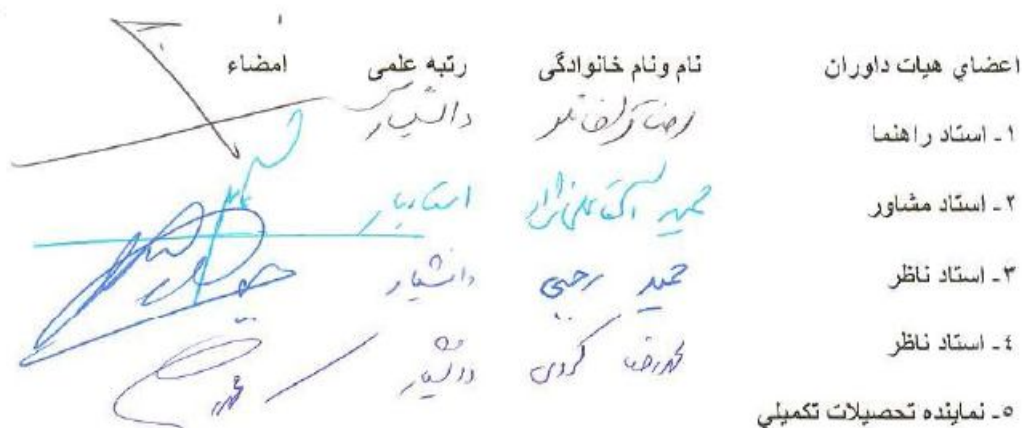 اعضاي هیات داوران نام ونام خانوادگی رتبه علمی امضاء
۱- استاد راهنما رضا دانشیار
۲- استاد مشاور حمید استادیار
۳- استاد ناظر حمید رجبی دانشیار
۴- استاد ناظر محمدرضا کردی دانشیار
۵- نماینده تحصیلات تکمیلي